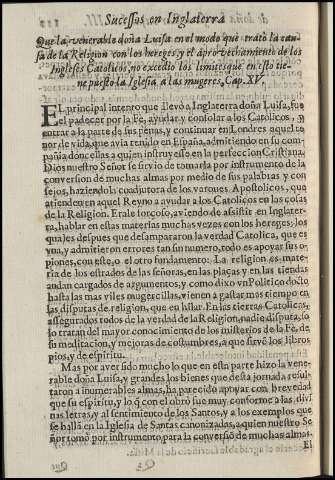 Sucessos en Inglaterra
Que la venerable doña Luisa en el modo que trato la cau-
sa de la Religion con los hereges, y el aprovechamiento de los
Ingleses Catolicos, no excedio los limites que en esto tie-
ne puesto la Iglesia a las mugeres, Cap. XV.
EL principal intento que lleuò a Inglaterra doña Luisa, fue
el padecer por la Fè, ayudar, y consolar a los Catolicos, y
entrar a la parte de sus penas, y continuar en Londres aquel te
nor de vida, que auia tenido en España, admitiendo en su com-
pañia donzellas a quien instruyesse en la perfeccion Cristiana.
Dios nuestro Señor se siruio de tomarla por instrumento de la
conuersion de muchas almas por medio de sus palabras y con
sejos, haziendola coadjutora de los varones Apostolicos, que
atienden en aquel Reyno a ayudar a los Catolicos en las cosas
de la Religion. Erale forçoso, auiendo de assistir en Inglater-
ra, hablar en estas materias muchas vezes con los hereges; los
quales despues que desampararon la verdad Catolica, que es
vna, y admitieron errores tan sin numero, todo es apoyar sus o-
piniones, con este, o el otro fundamento: La religion es mate-
ria de los estrados de las señoras, en las plaças y en las tiendas
andan cargados de argumentos, y como dixo vn Politico docto
hasta las mas viles mugercillas, vienen a gastar mas tiempo en
las disputas de religion, que en hilar. En las tierras Catolicas,
assegurados todos de la verdad de la Religion, nadie disputa, so
lo tratan del mayor conocimiento de los misterios de la Fè, de
su meditacion, y mejoras de costumbres, a que siruen los libros
pios, y de espiritu.
Mas por auer sido mucho lo que en esta parte hizo la vene-
rable doña Luisa, y grandes los bienes que desta jornada resul-
taron a inumerables almas, ha parecido apoyar con breuedad
que su espiritu, y lo que con el obrò fue muy conforme a las diui
nas letras, y al sentimiento de los Santos, y a los exemplos que
se hallã en la Iglesia de Santas canonizadas, a quien nuestro Se
ñor tomò por instrumento para la conuersiõ de muchas almas.
El